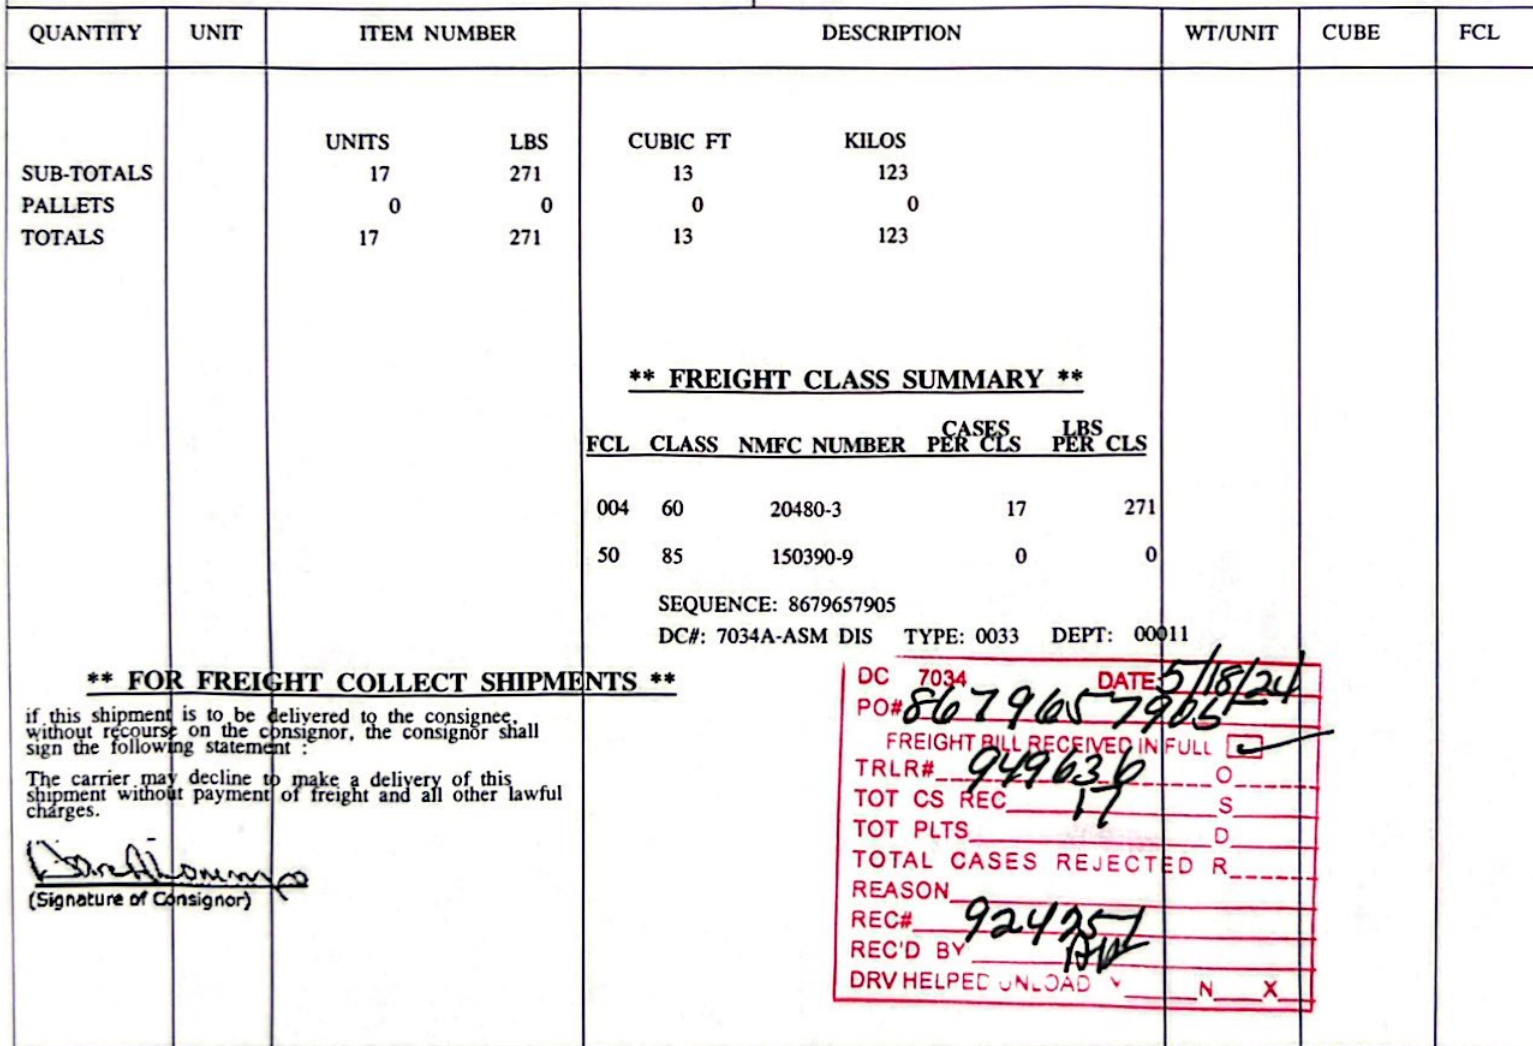 QUANTITY UNIT ITEM NUMBER DESCRIPTION WT/UNIT CUBE FCL
UNITS LBS CUBIC FT KILOS
SUB-TOTALS 17 271 13 123
PALLETS 0 0 0 0
TOTALS 17 271 13 123
** FREIGHT CLASS SUMMARY **
FCL CLASS NMFC NUMBER CASES PER CLS LBS PER CLS
004 60 20480-3 17 271
50 85 150390-9 0 0
SEQUENCE: 8679657905
DC#: 7034A-ASM DIS TYPE: 0033 DEPT: 00011
** FOR FREIGHT COLLECT SHIPMENTS **
if this shipment is to be delivered to the consignee,
without recourse on the consignor, the consignor shall
sign the following statement :
The carrier may decline to make a delivery of this
shipment without payment of freight and all other lawful
charges.
(Signature of Consignor)
DC 7034 DATE 5/18/24
PO# 8679657905
FREIGHT BILL RECEIVED IN FULL
TRLR# 949636 O
TOT CS REC 17 S
TOT PLTS D
TOTAL CASES REJECTED R
REASON
REC# 924251
REC'D BY
DRV HELPED UNLOAD Y N X